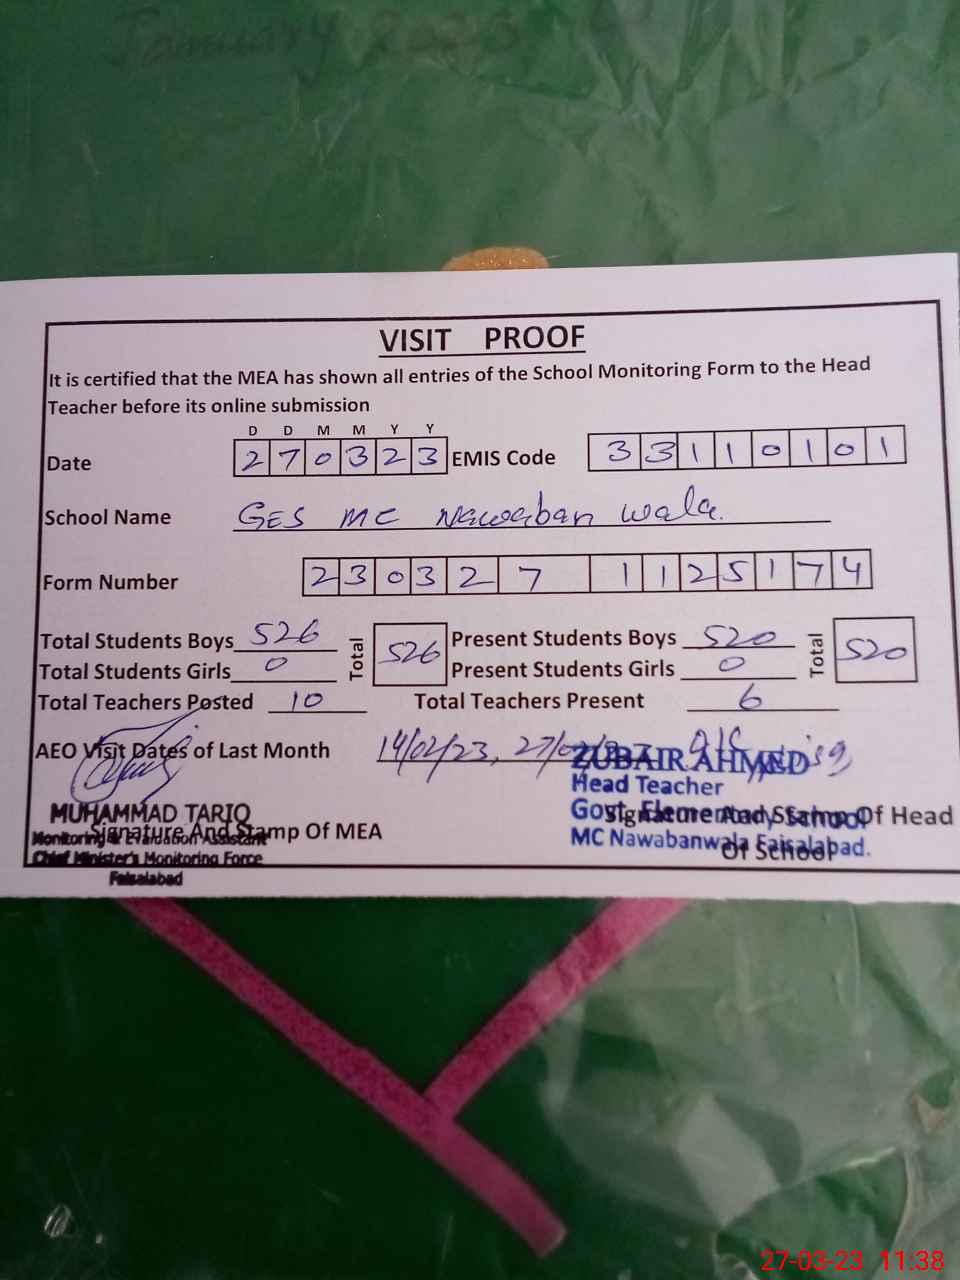 January 2023
VISIT PROOF
It is certified that the MEA has shown all entries of the School Monitoring Form to the Head
Teacher before its online submission
D D M M Y Y
Date 270323 EMIS Code 33110101
School Name GES MC Nawaban wala.
Form Number 230327 1125174
Total Students Boys 526 Total 526 Present Students Boys 520 Total 520
Total Students Girls 0 Present Students Girls 0
Total Teachers Posted 10 Total Teachers Present 6
AEO Visit Dates of Last Month 14/02/23, 27/02/
ZUBAIR AHMED
Head Teacher
Govt. Elementary School
MC Nawabanwala Faisalabad.
Signature And Stamp Of Head
Of School
MUHAMMAD TARIQ
Signature And Stamp Of MEA
Monitoring & Evaluation Assistant
Chief Minister's Monitoring Force
Faisalabad
27-03-23 11:38